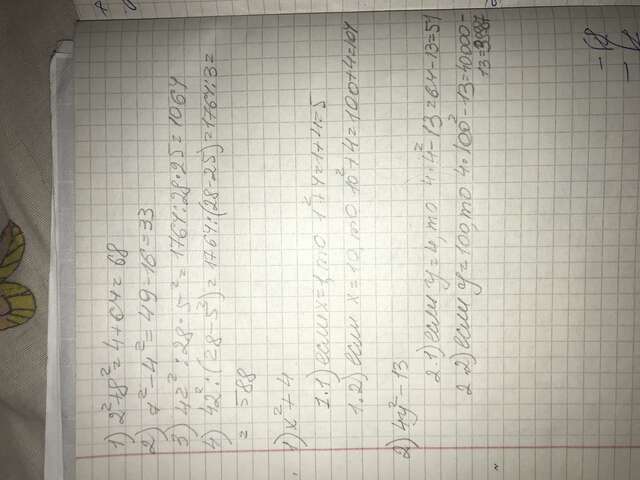 1) 2²+8²=4+64=68
2) 7²-4²=49-16=33
3) 42²:28·5²=1764:28·25=1064
4) 42²:(28-5²)=1764:(28-25)=1764:3=
=588
1) x²+4
1.1) если x=1, то 1²+4=1+4=5
1.2) если x=10, то 10²+4=100+4=104
2) 4y²-13
2.1) если y=4, то 4·4²-13=64-13=51
2.2) если y=100, то 4·100²-13=10000-
13=